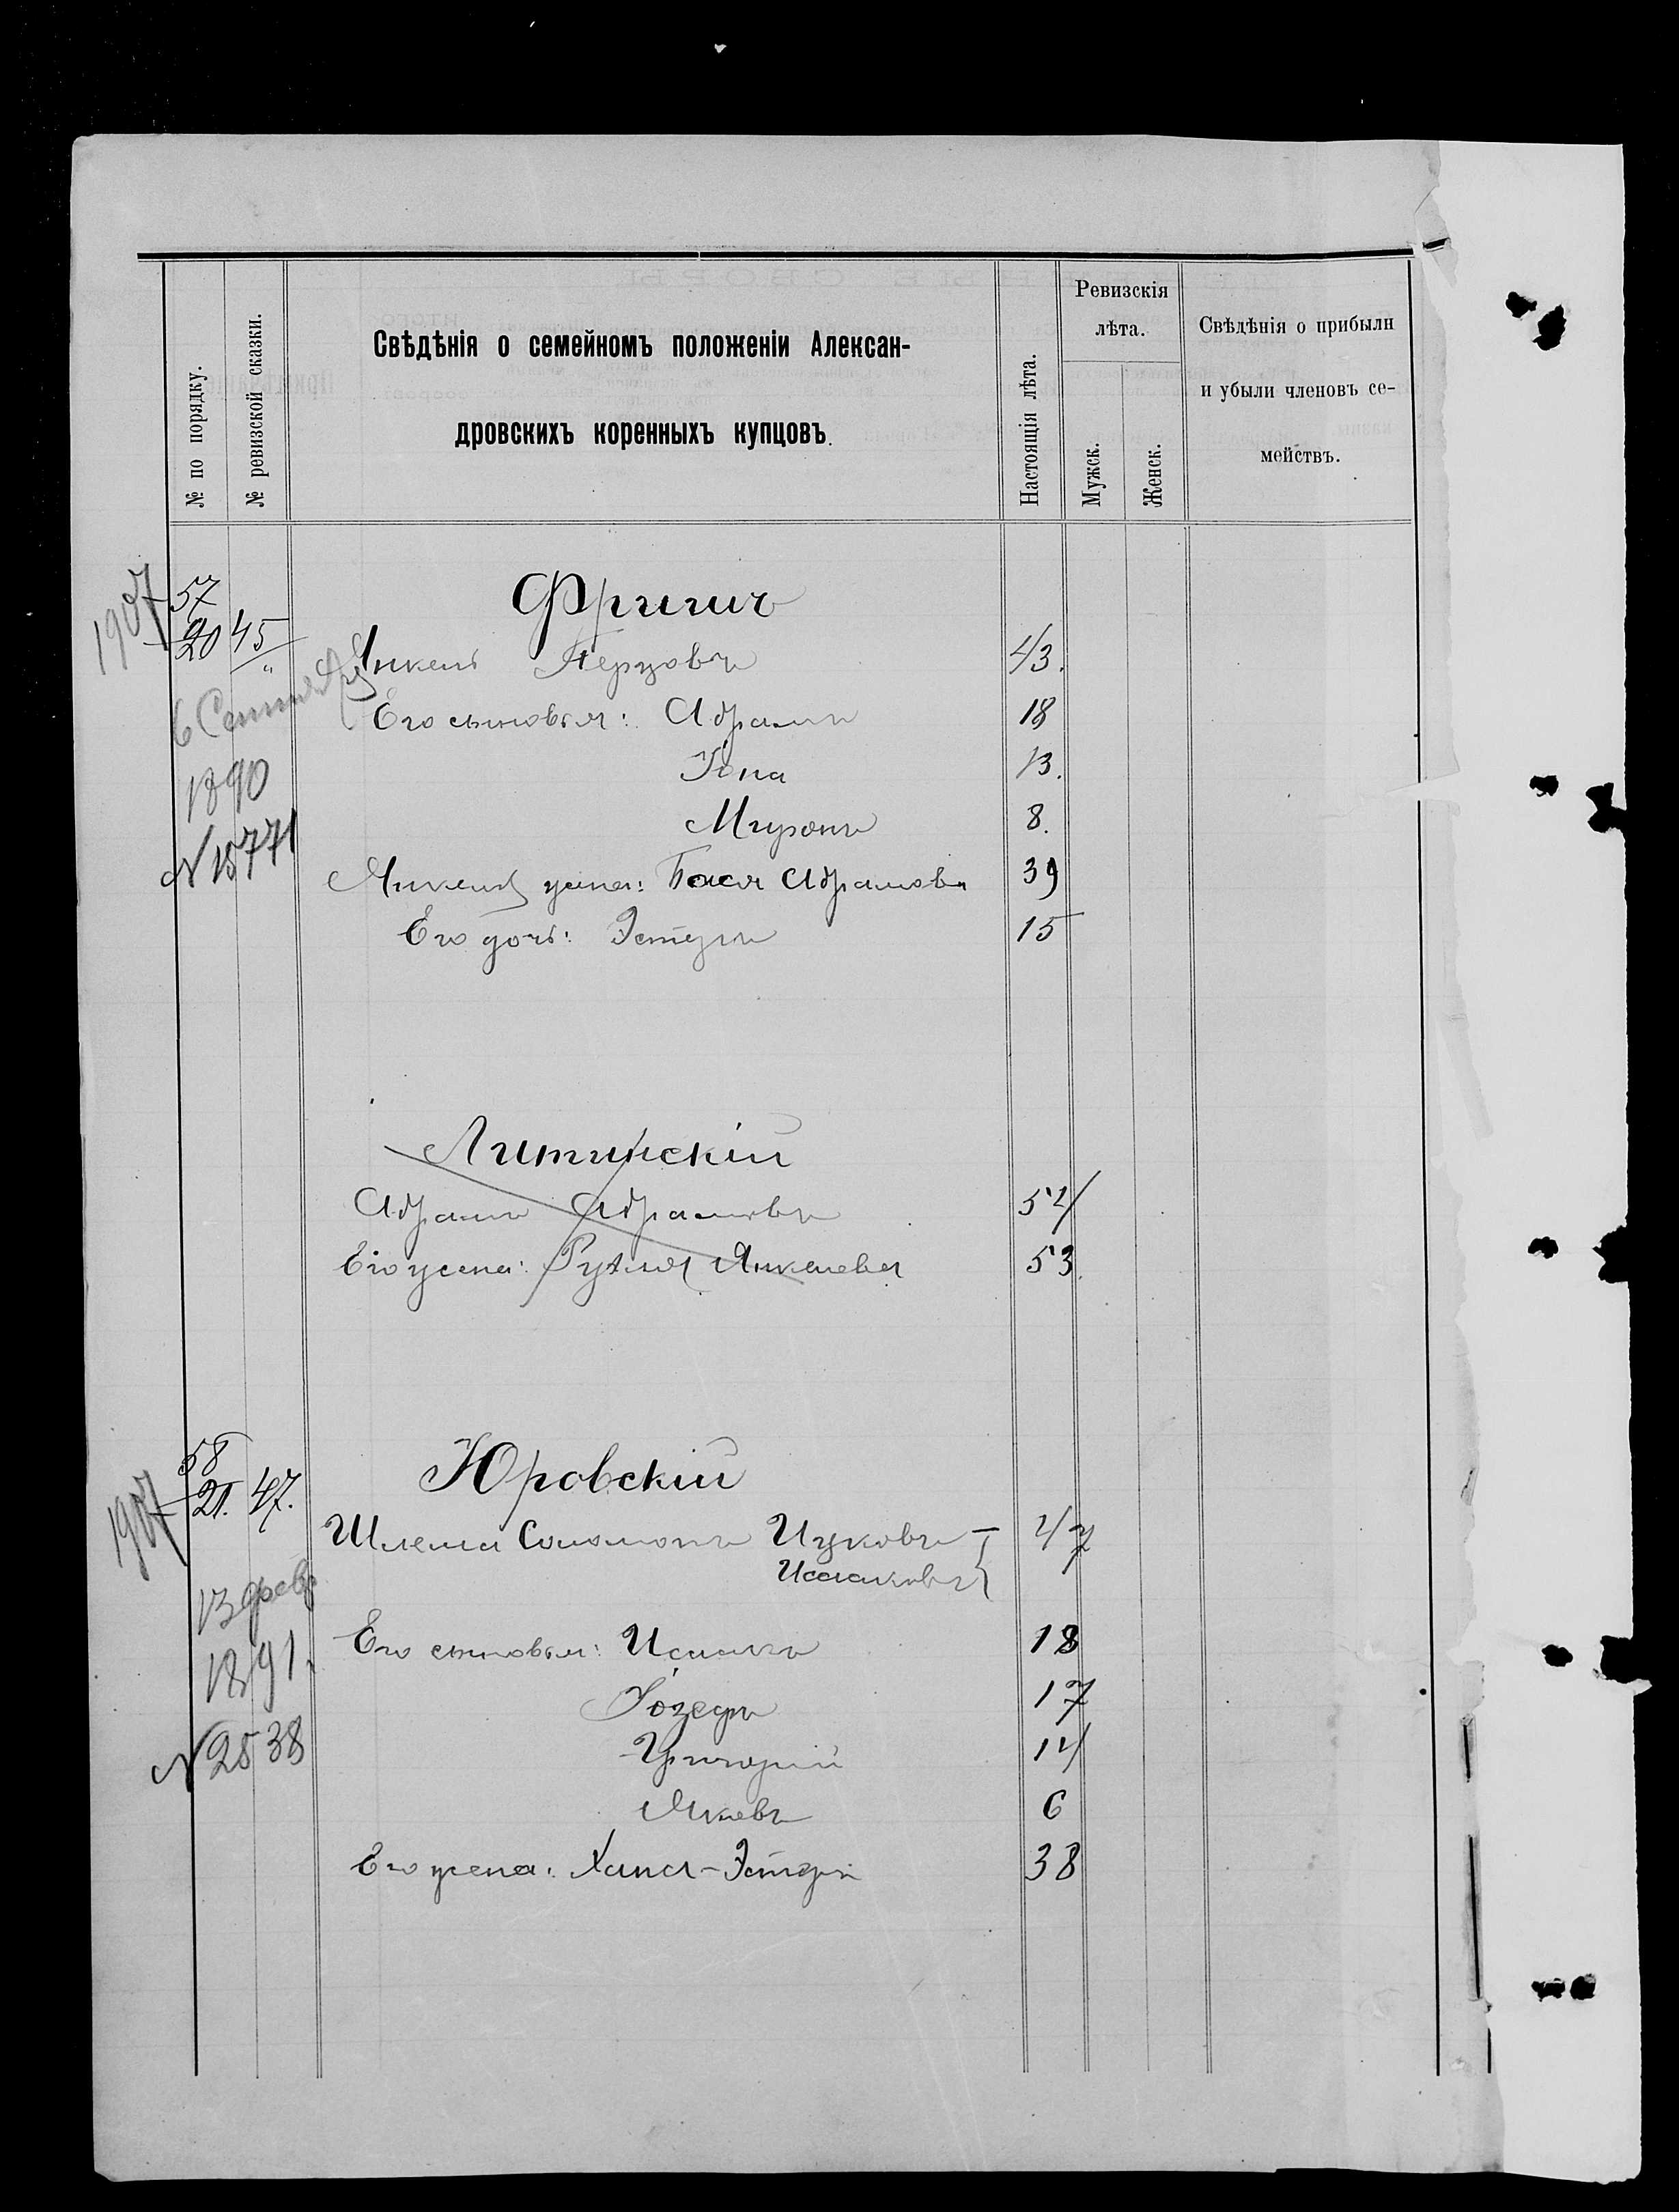 № по порядку.
№ ревизской сказки.
Свѣдѣнія о семейномъ положеніи Алексан-
дровскихъ коренныхъ купцовъ.
Настоящія лѣта.
Ревизскія
лѣта.
Мужск.
Женск.
Свѣдѣнія о прибыли
и убыли членовъ се-
мействъ.
1907
57
20 45
"
Фригич
Янкель Перцовъ 43.
6 Сентября
Его сыновья: Абрамъ 18
Іона 13.
1890
Миронъ 8.
N 15771
Янкеля жена: Бася Абрамова 39
Его дочь: Эстеръ 15
Литинскій
Абрамъ Абрамовъ 54
Его жена: Рухля Янкелева 53.
1907
58
21. 47.
Юровскій
Шлема Соломонъ Ицковъ 47
Исааковъ
13 фев
1891
Его сыновья: Исаакъ 18
Іозефъ 17
N 2538
Григорій 14
Яковъ 6
Его жена: Хана-Эстеръ 38